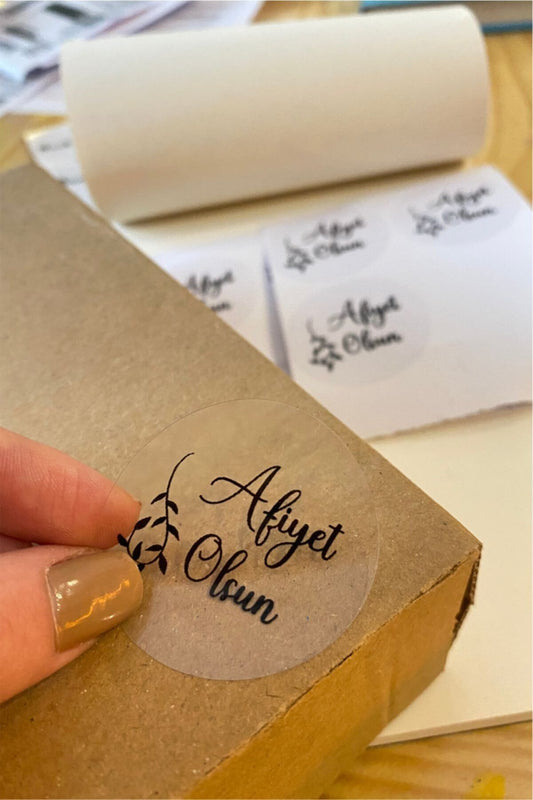 Afiyet
Olsun
Afiyet
Olsun
Afiyet
Olsun
Afiyet
Olsun
Afiyet
Olsun